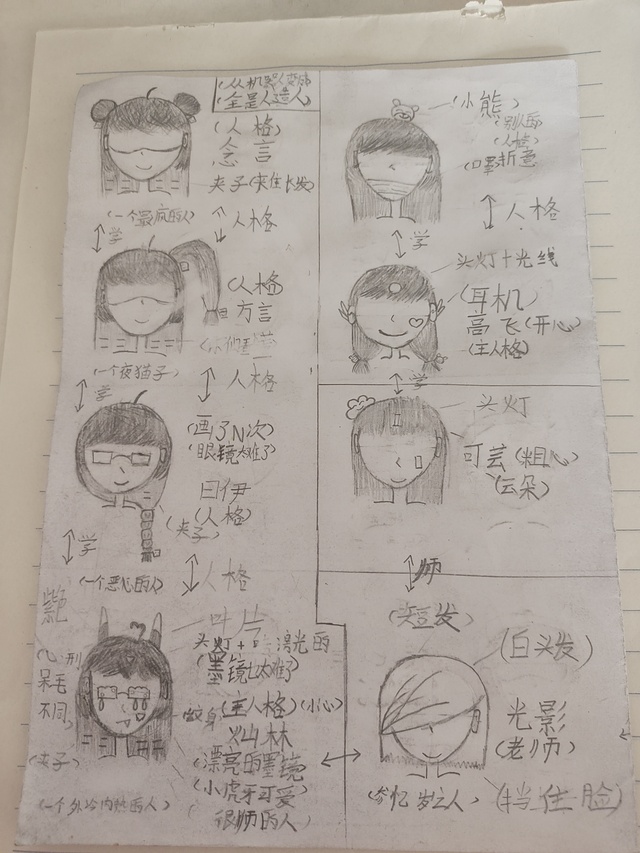 从机器人变成
全是人造人
(人格)
念言
夹子(夹住长发)
(一个最疯的人)
学
人格
(人格)
方言
(一个夜猫子)
学
人格
(画了N次)
(眼镜太难了)
曰伊
(人格)
(夹子)
学
(一个恶心的人)
人格
紫色
叶片
头灯+
激光雨
(墨镜太难了)
心形
呆毛
不同
纹身
(主人格)(小心)
灿林
(漂亮的墨镜
(小虎牙可爱
很帅的人)
(夹子)
(一个外冷内热的人)
(小熊)
(别人画)
(人格)
(口罩折意
人格
学
头灯+光线
(耳机)
高飞(开心)
(主人格)
学
头灯
可芸(粗心)
(云朵)
师
(短发)
(白头发)
光影
(老师)
岁之人)
(挡住脸)